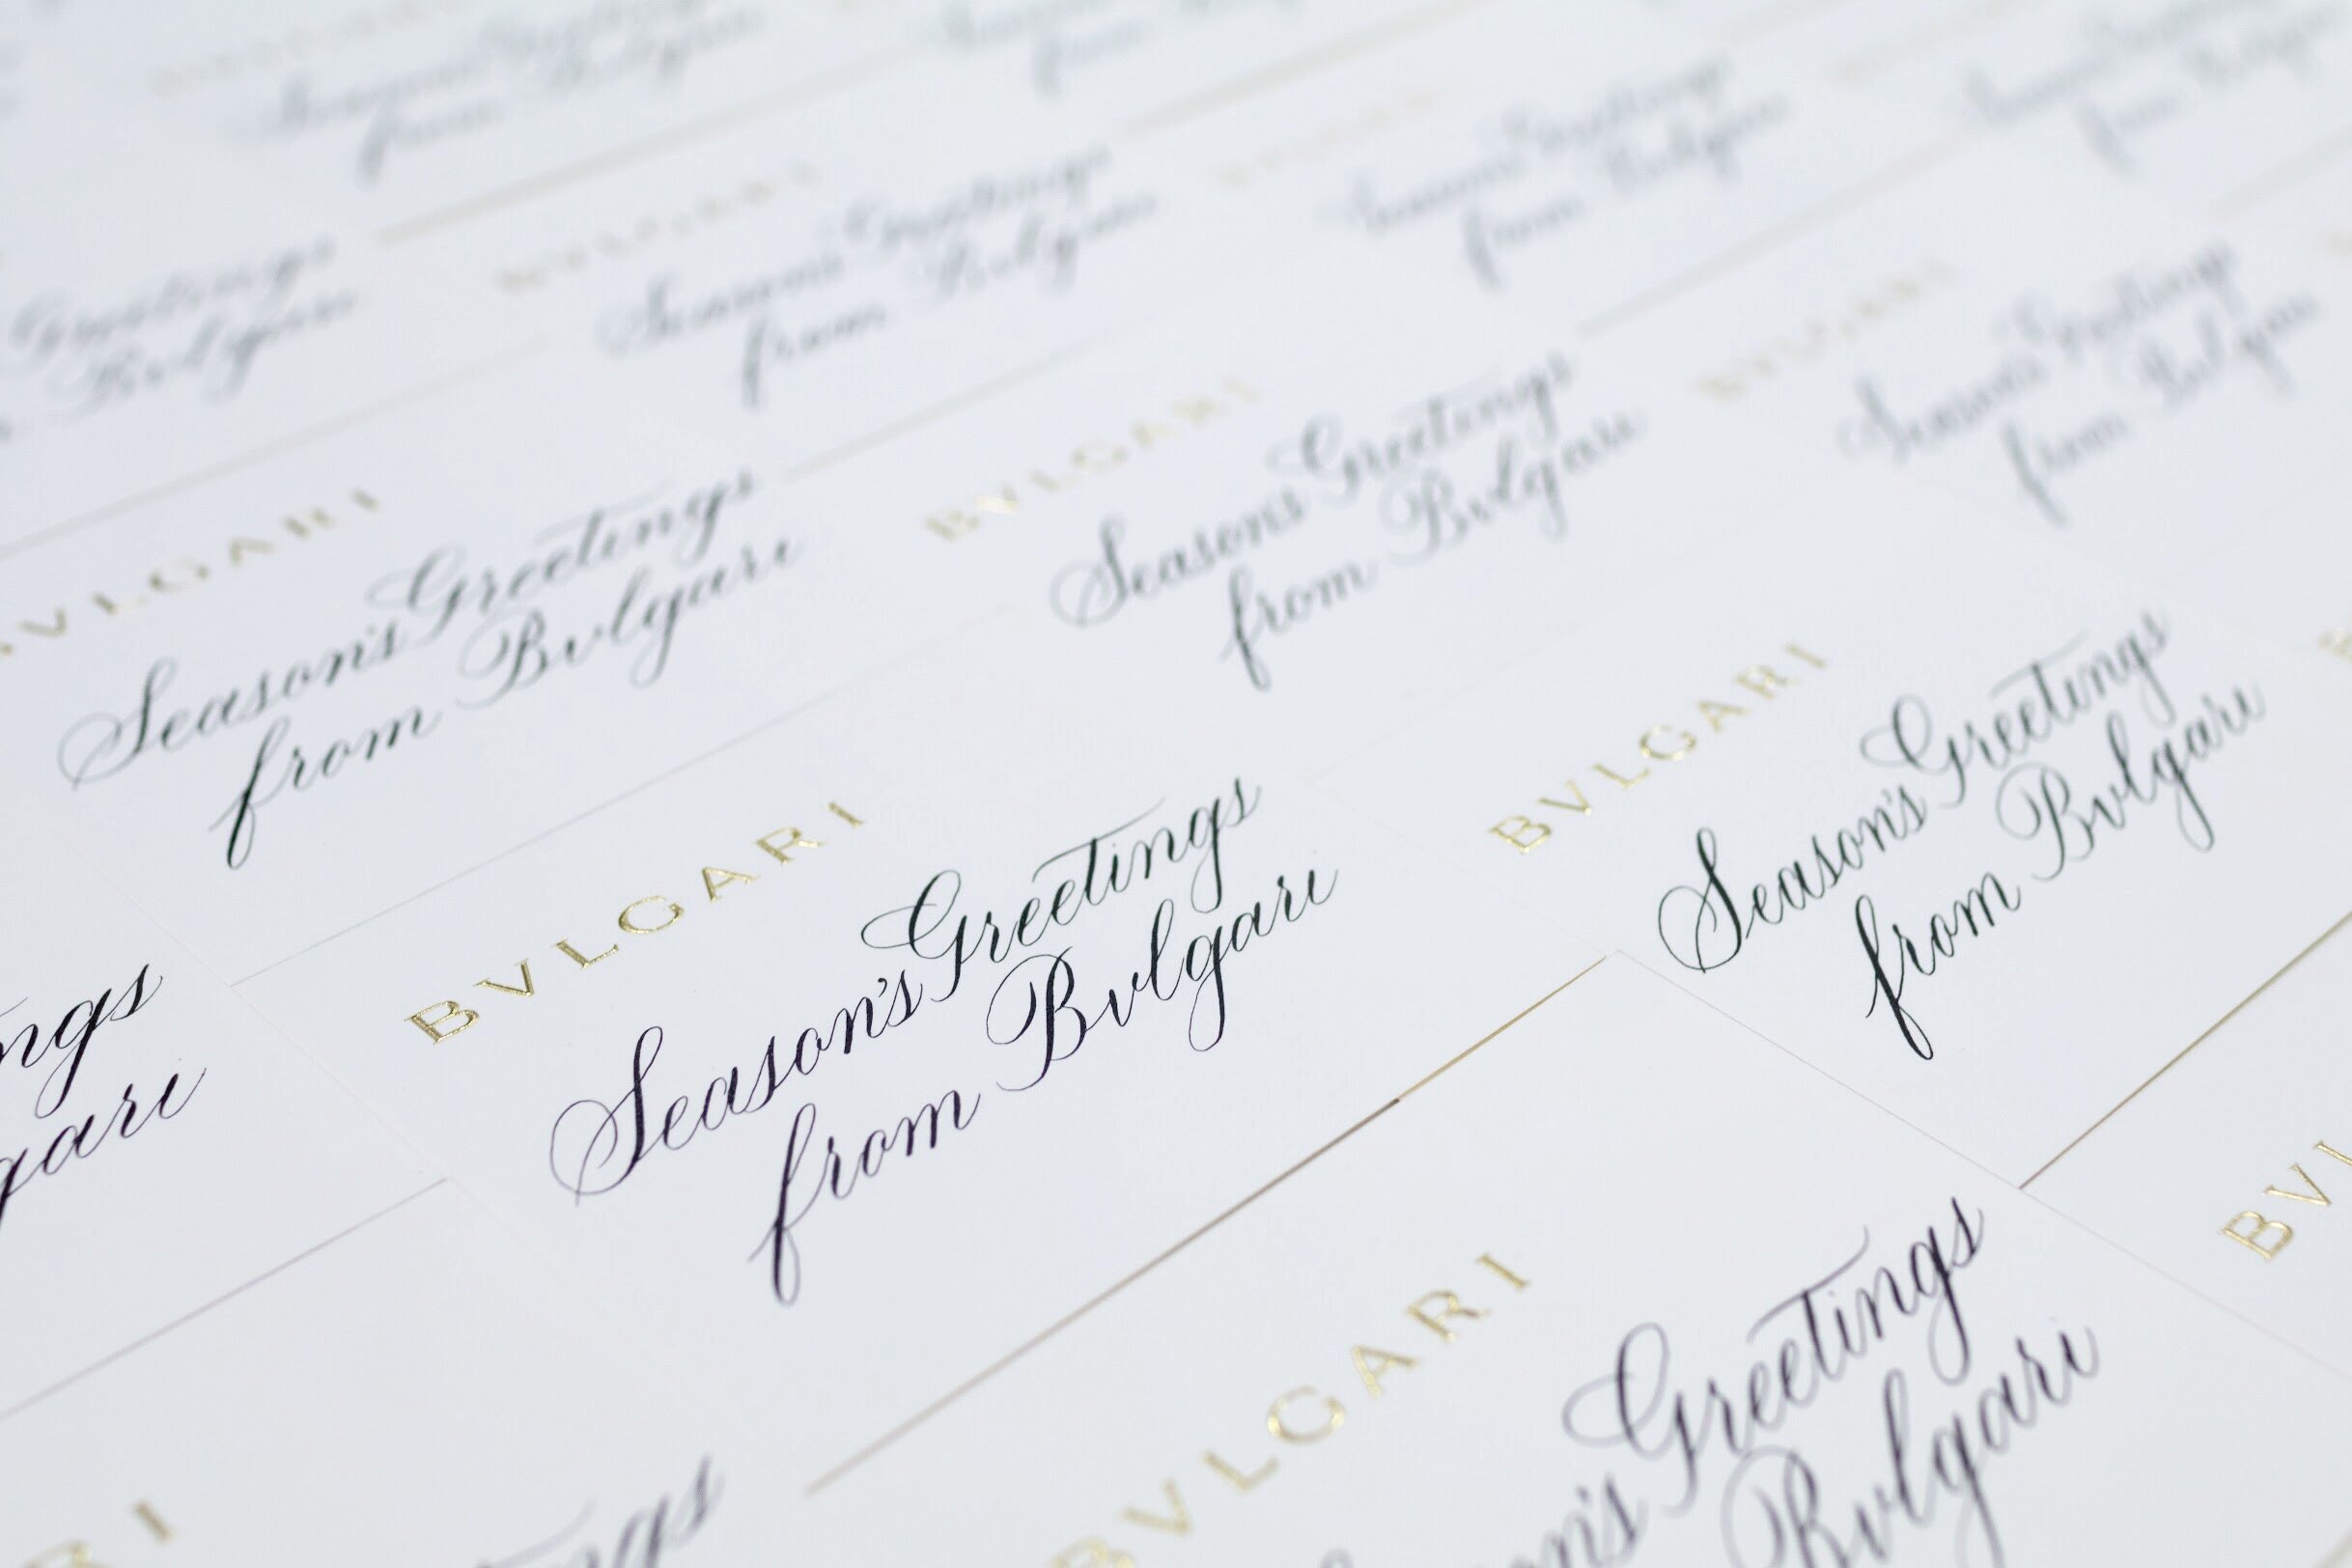 BVLGARI
Season's Greetings
from Bvlgari
BVLGARI
Season's Greetings
from Bvlgari
BVLGARI
Season's Greetings
from Bvlgari
BVLGARI
Season's Greetings
from Bvlgari
BVLGARI
Season's Greetings
from Bvlgari
BVLGARI
Season's Greetings
from Bvlgari
BVLGARI
Season's Greetings
from Bvlgari
ngs
gari
BVLGARI
n's Greetings
Bvlgari
BVL
RI
ngs